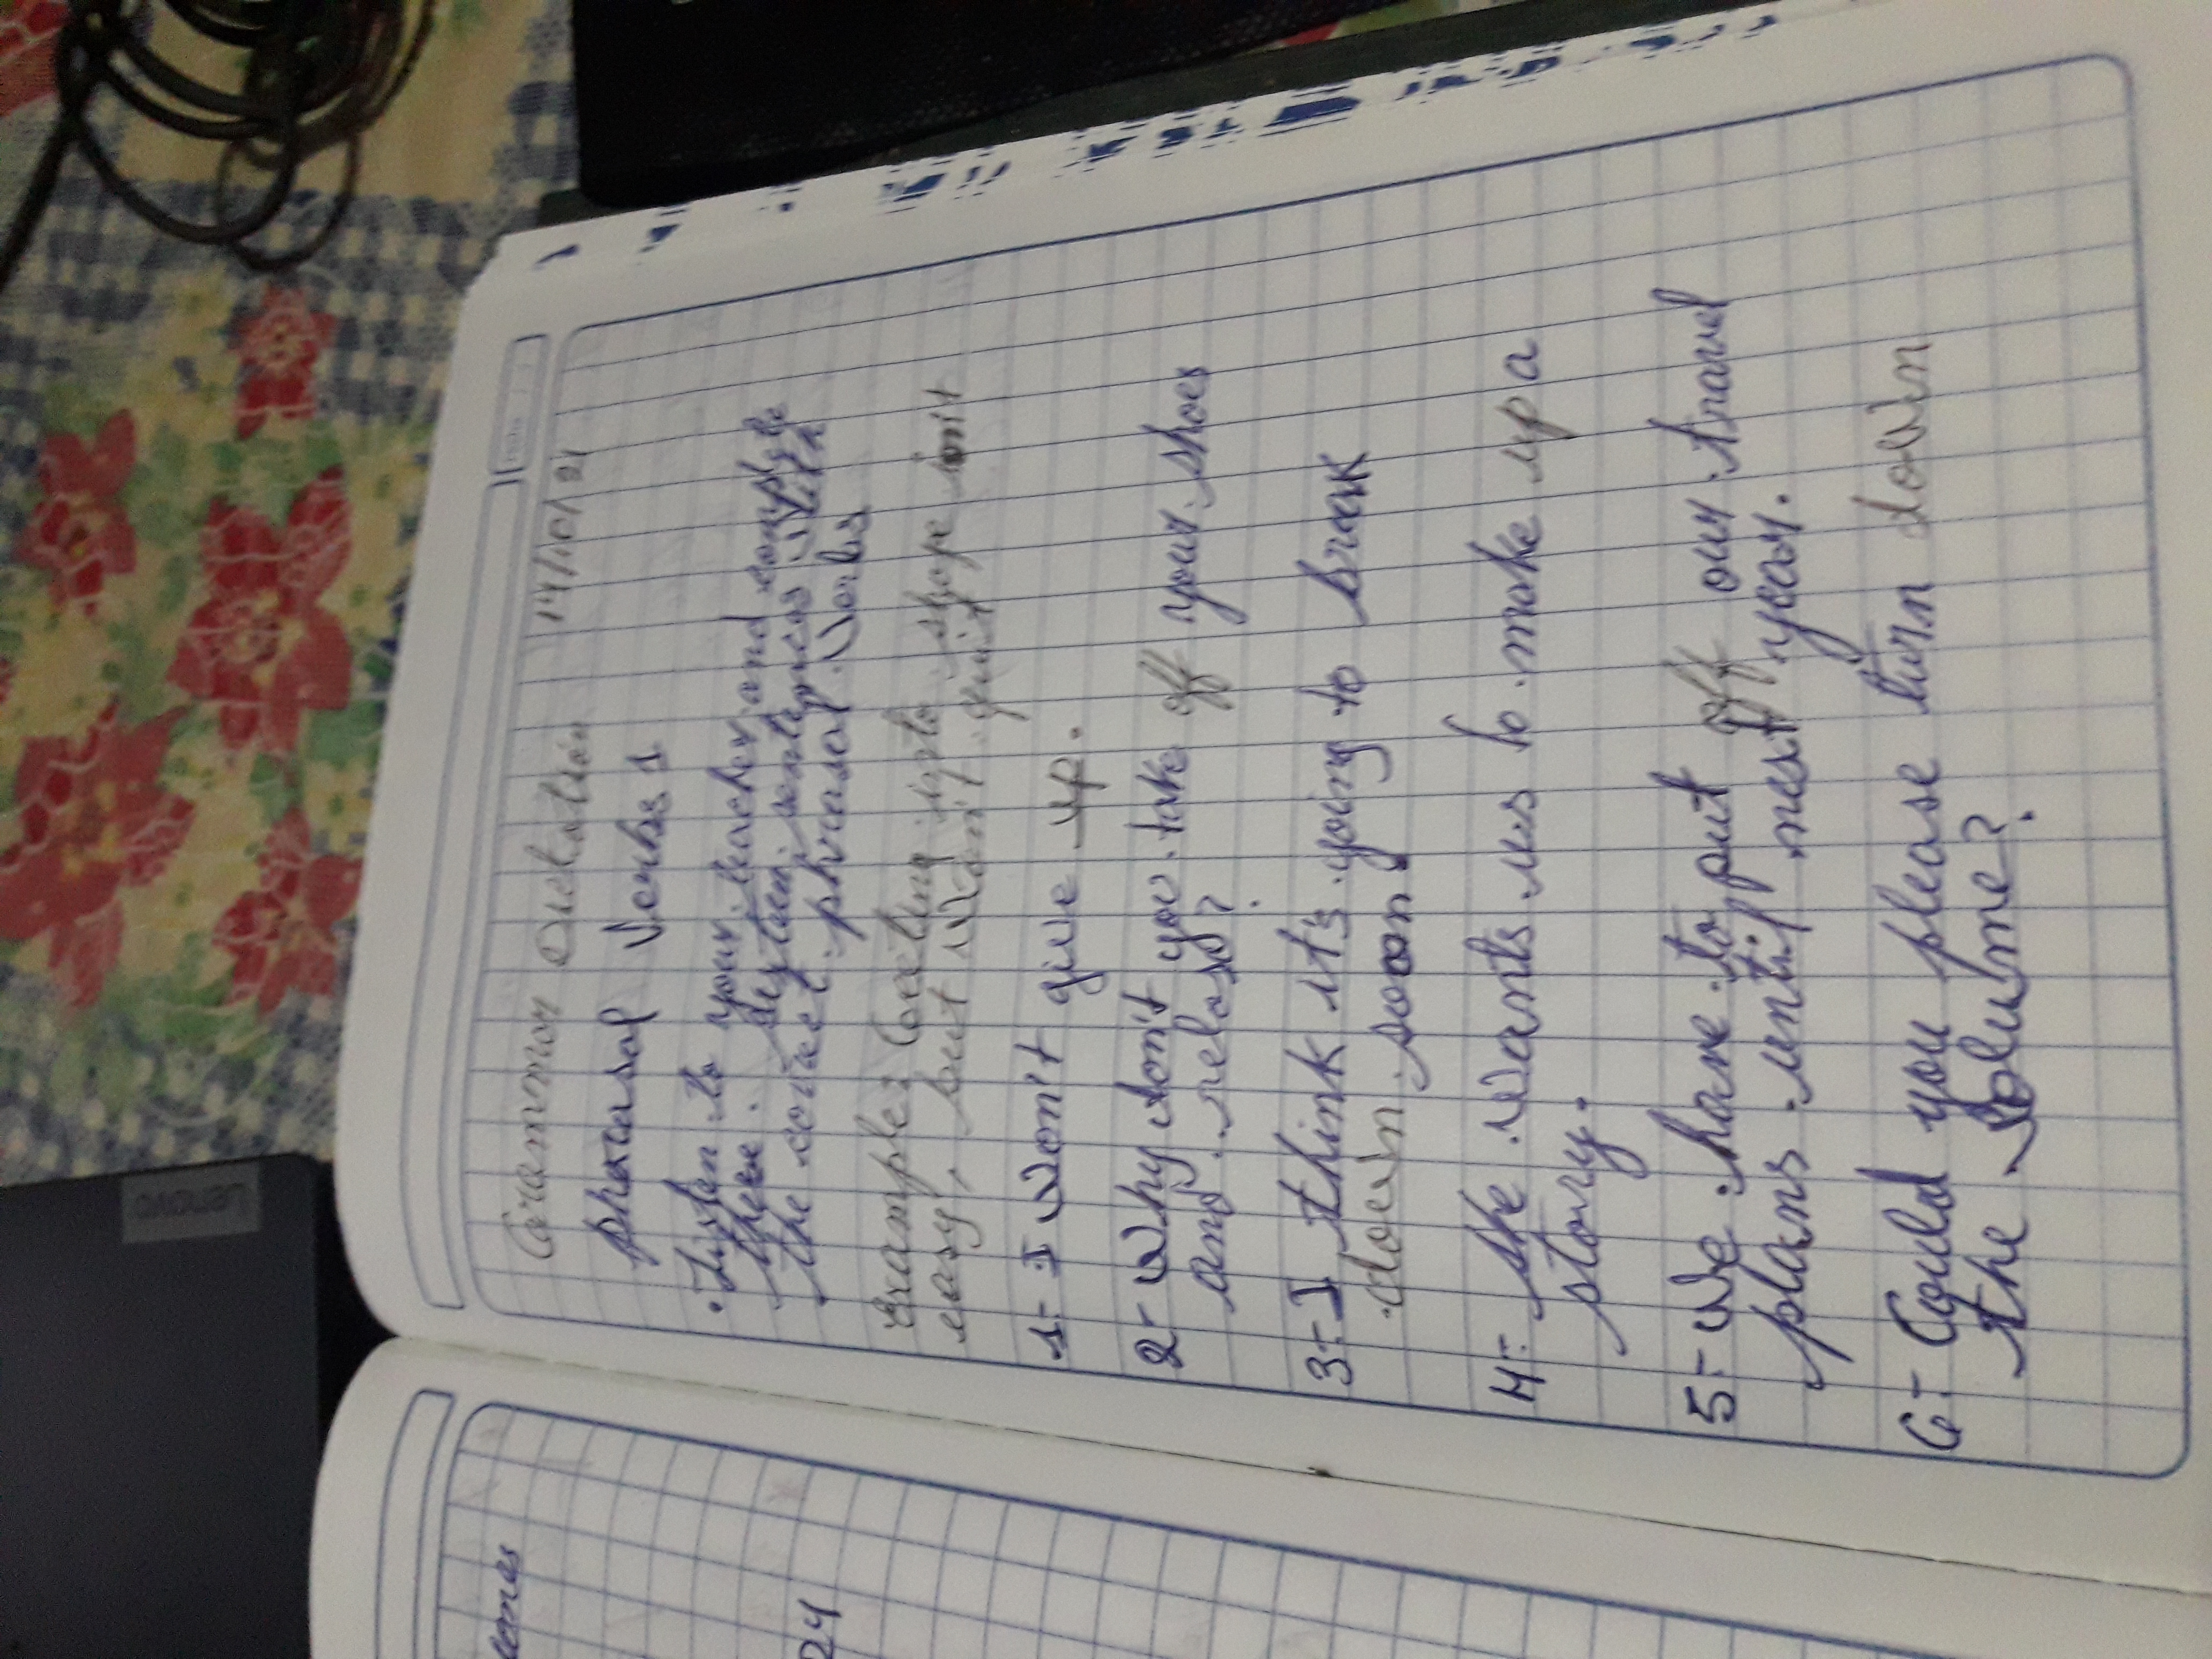 Grammar Dictation 14/10/24
phrasal Verbs 1
• Listen to your teacher and complete
these sixteen sentences with
the correct phrasal verbs
example: Getting into shape isn't
easy, but won't quit
1- I won't give up.
2- Why don't you take off your shoes
and relax?
3- I think it's going to break
down soon.
4- She wants us to make up a
story.
5- We have to put off our travel
plans until next year.
6- Could you please turn down
the volume?
24
Lenovo